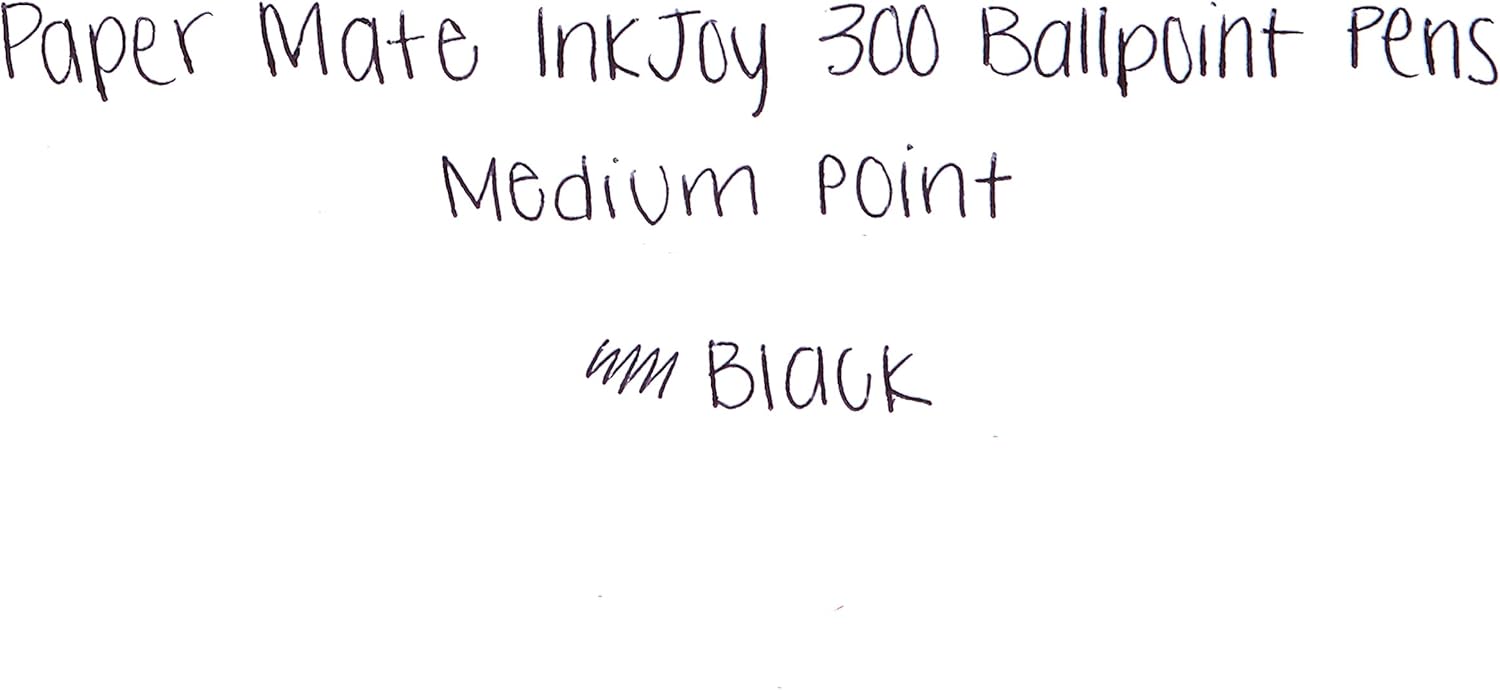 Paper Mate InkJoy 300 Ballpoint Pens
Medium Point
Black